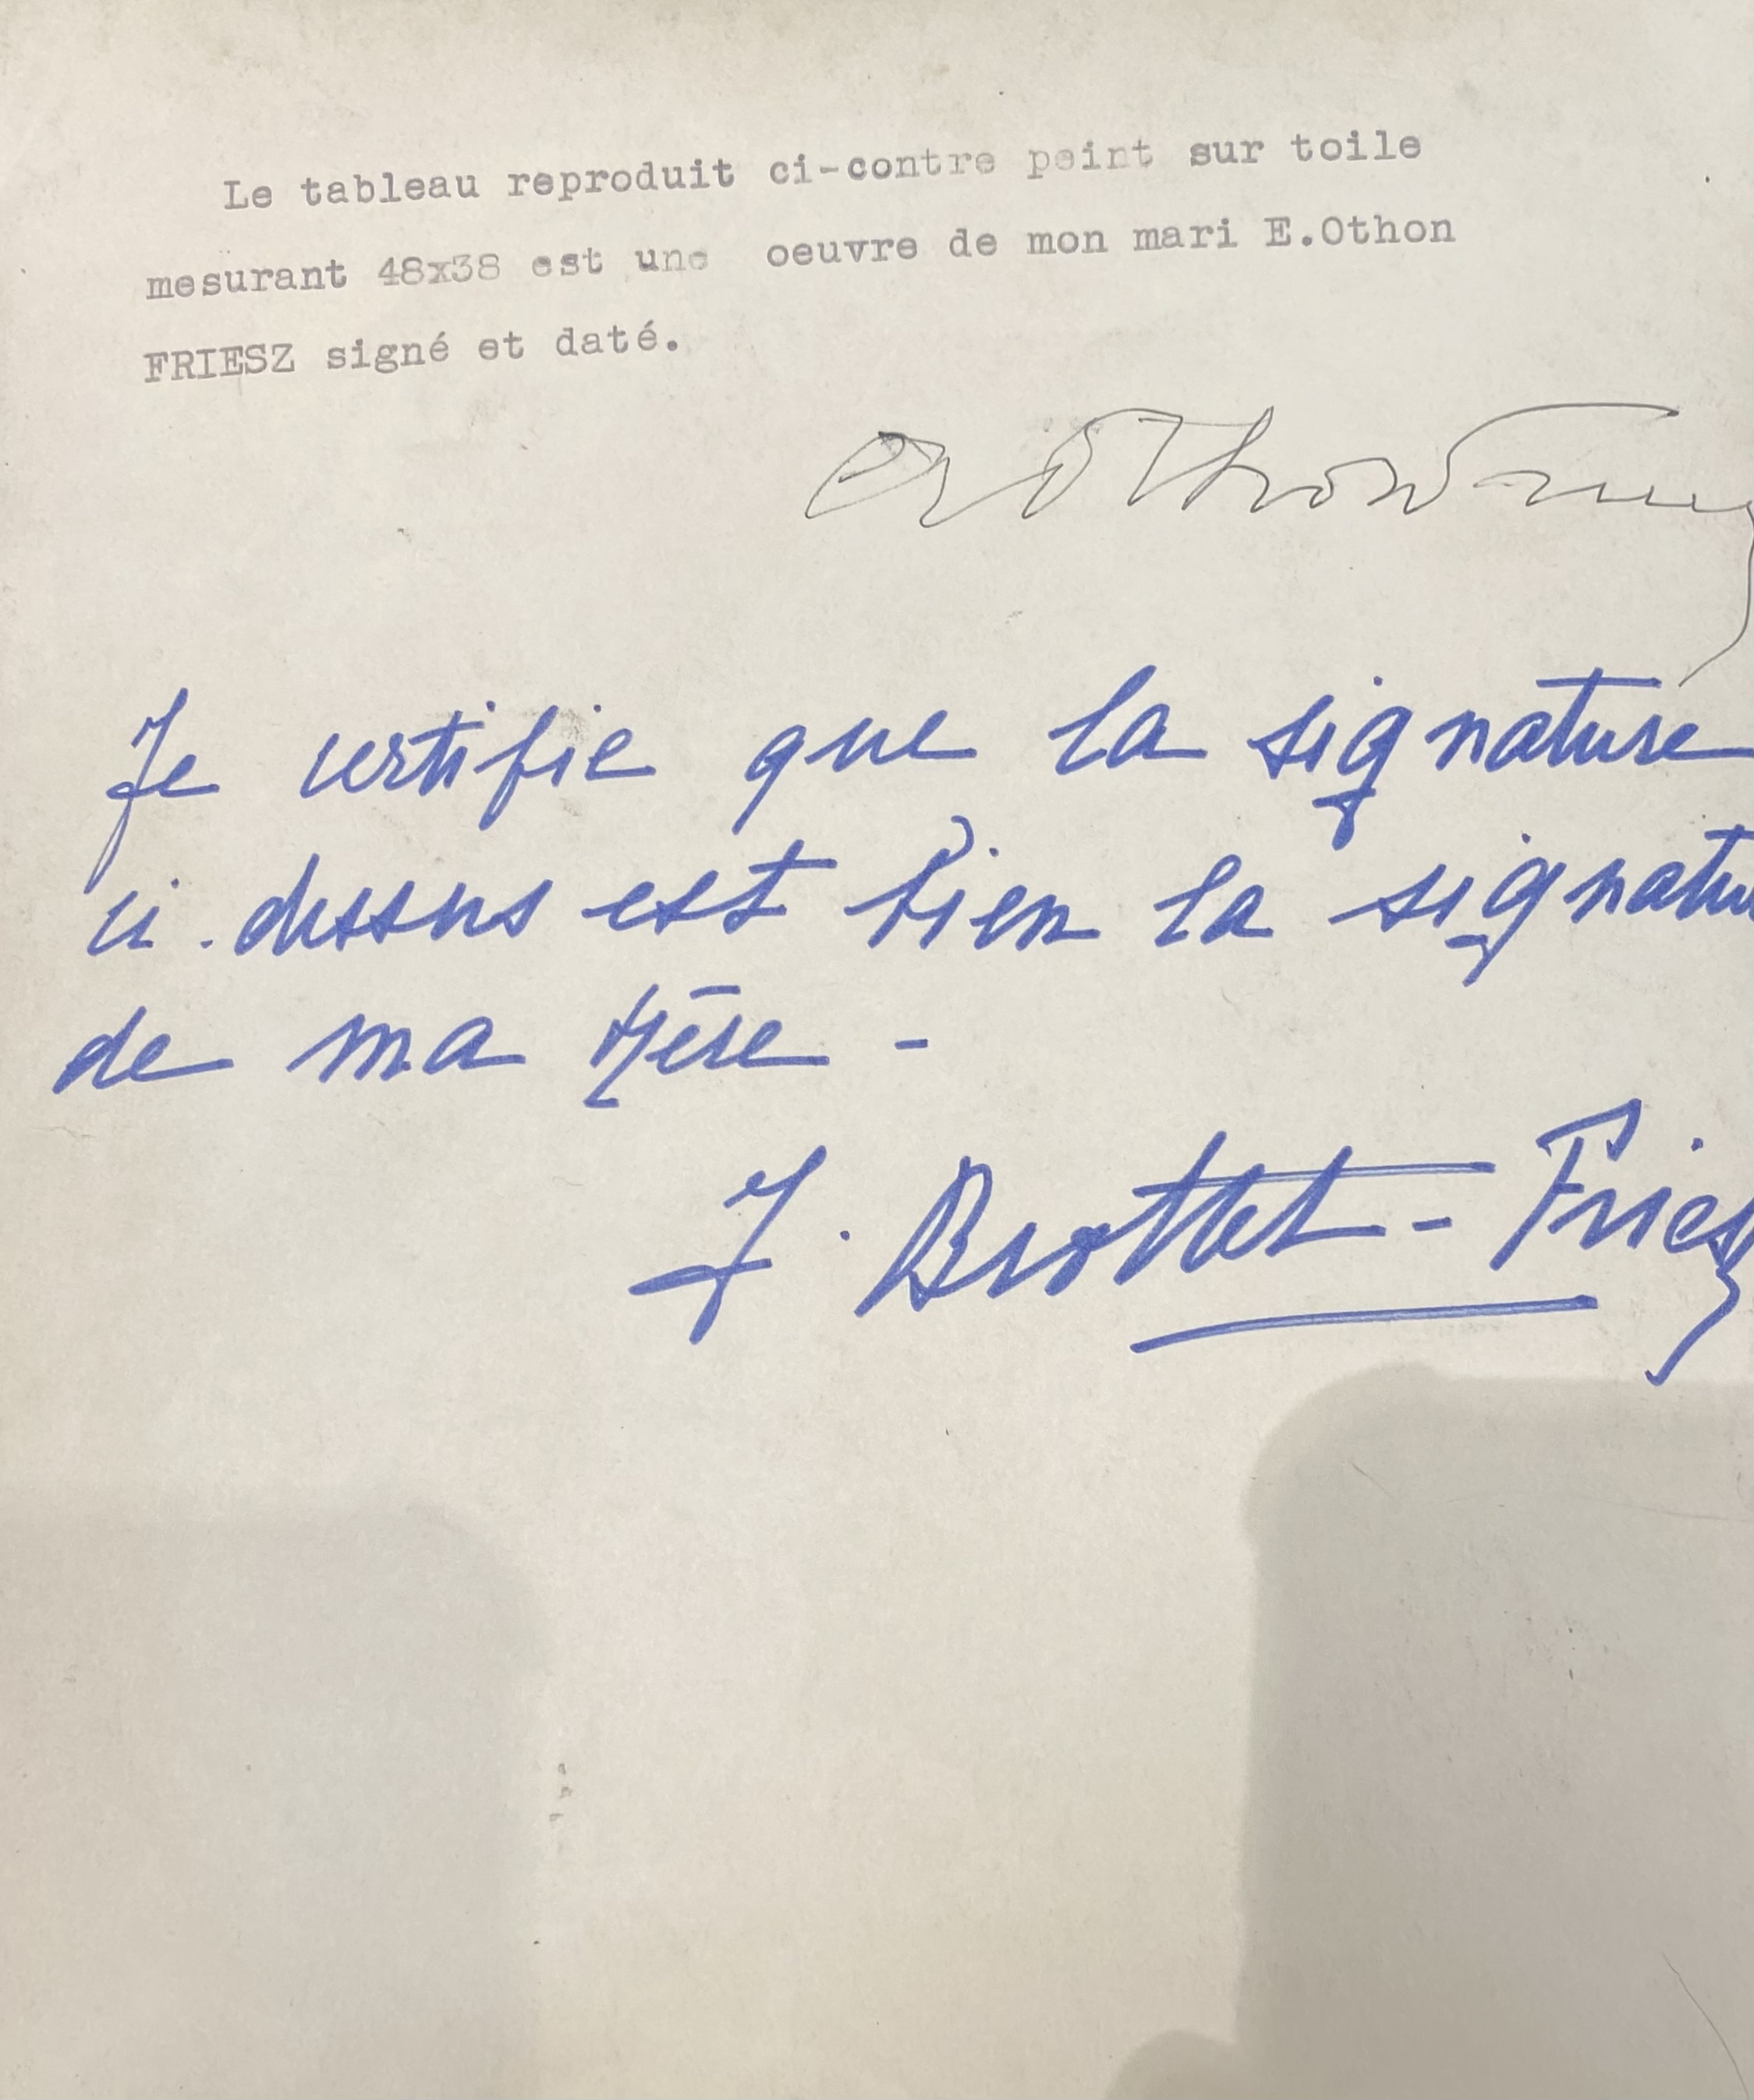 Le tableau reproduit ci-contre peint sur toile
mesurant 48x38 est une oeuvre de mon mari E.Othon
FRIESZ signé et daté.
Othon Friesz
Je certifie que la signature
ci-dessus est bien la signatu
de ma Mère -
J. Brottet-Friesz